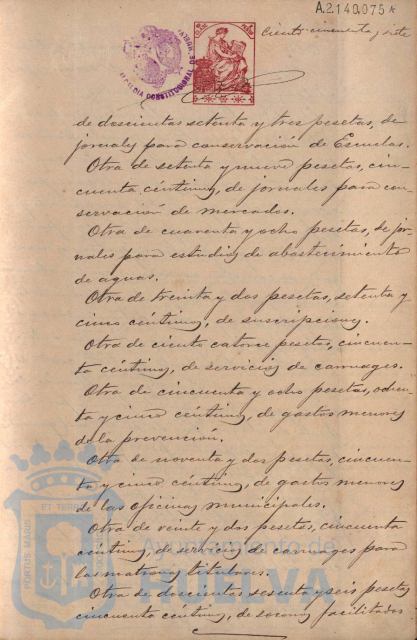 A.2140.075*
Ciento cincuenta y siete
ALCALDIA CONSTITUCIONAL DE HUELVA
de doscientas setenta y tres pesetas, de
jornales para conservación de Escuelas.
Otra de setenta y nueve pesetas, cin-
cuenta céntimos, de jornales para con-
servación de mercados.
Otra de cuarenta y ocho pesetas, de jor-
nales para estudios de abastecimiento
de aguas.
Otra de treinta y dos pesetas, setenta y
cinco céntimos, de suscripciones.
Otra de ciento catorce pesetas, cincuen-
ta céntimos, de servicios de carruages.
Otra de cincuenta y ocho pesetas, ochen-
ta y cinco céntimos, de gastos menores
de la prevención.
Otra de noventa y dos pesetas, cincuen-
ta y cinco céntimos, de gastos menores
de las oficinas municipales.
Otra de veinte y dos pesetas, cincuenta
céntimos, de servicios de carruages para
las matronas titulares.
Otra de doscientas sesenta y seis pesetas
cincuenta céntimos, de socorros facilitados
PORTUS MARIS ET TERRAE
Ayuntamiento de
HUELVA